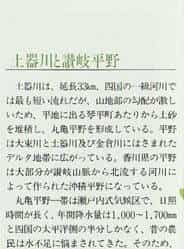 土器川と讃岐平野
土器川は、延長33km、四国の一級河川で
は最も短い流れだが、山地部の勾配が激し
いため、平地に出る琴平町あたりから土砂
を堆積し、丸亀平野を形成している。平野
は大束川と土器川及び金倉川にはさまれた
デルタ地帯に広がっている。香川県の平野
は大部分が讃岐山脈から北流する河川に
よって作られた沖積平野になっている。
丸亀平野一帯は瀬戸内式気候区で、日照
時間が長く、年間降水量は1,000〜1,700mm
と四国の太平洋側の半分しかなく、昔の農
民は水不足に悩まされてきた。そのため、